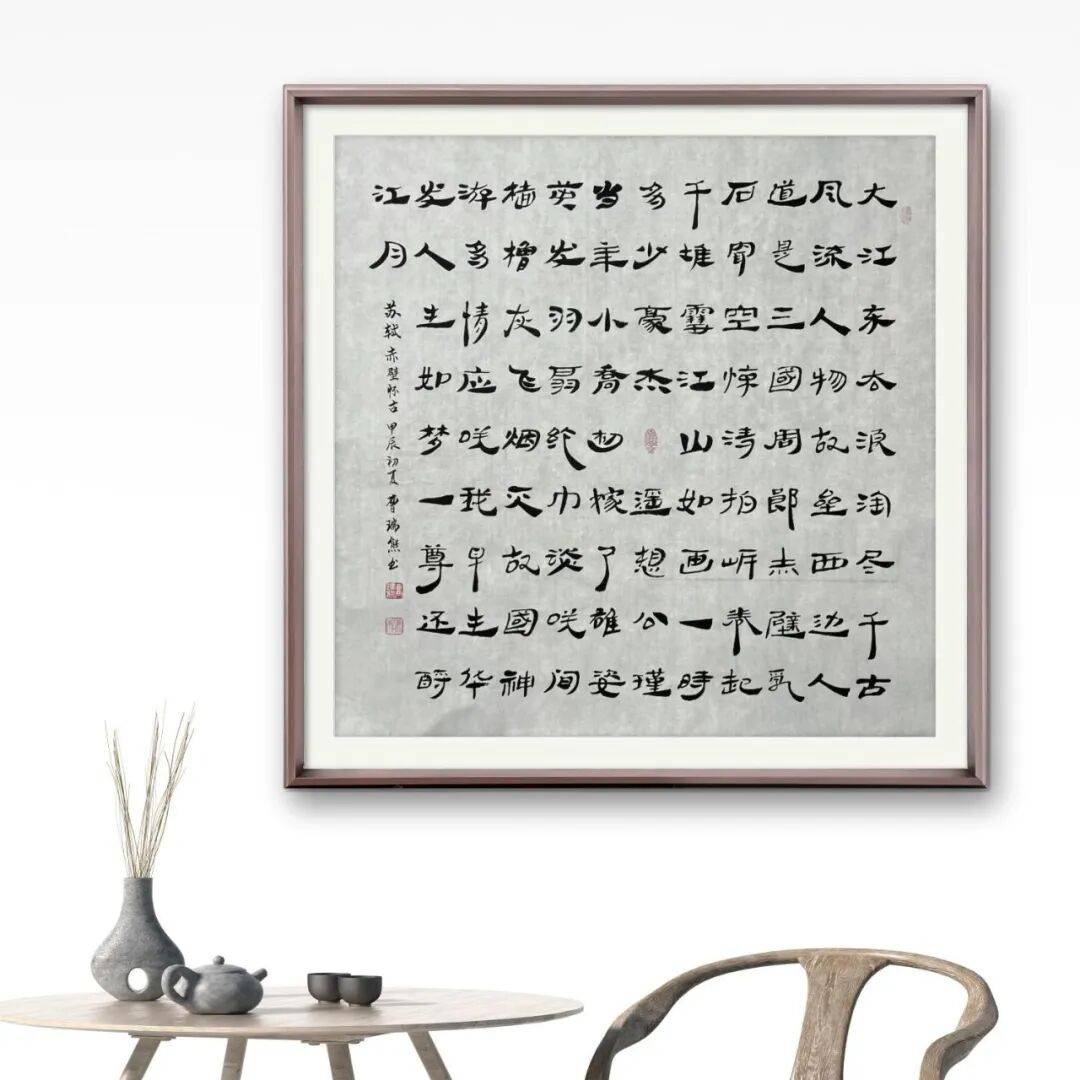 大江东去浪淘尽千古
风流人物故垒西边人
道是三國周郎赤壁乱
石穿空惊涛拍岸卷起
千堆雪江山如画一時
多少豪杰遥想公瑾
当年小喬初嫁了雄姿
英发羽扇纶巾谈咲间
樯橹灰飞烟灭故國神
游多情应咲我早生华
发人生如梦一尊还酹
江月
苏轼赤壁怀古 甲辰初夏 曹瑞熊书